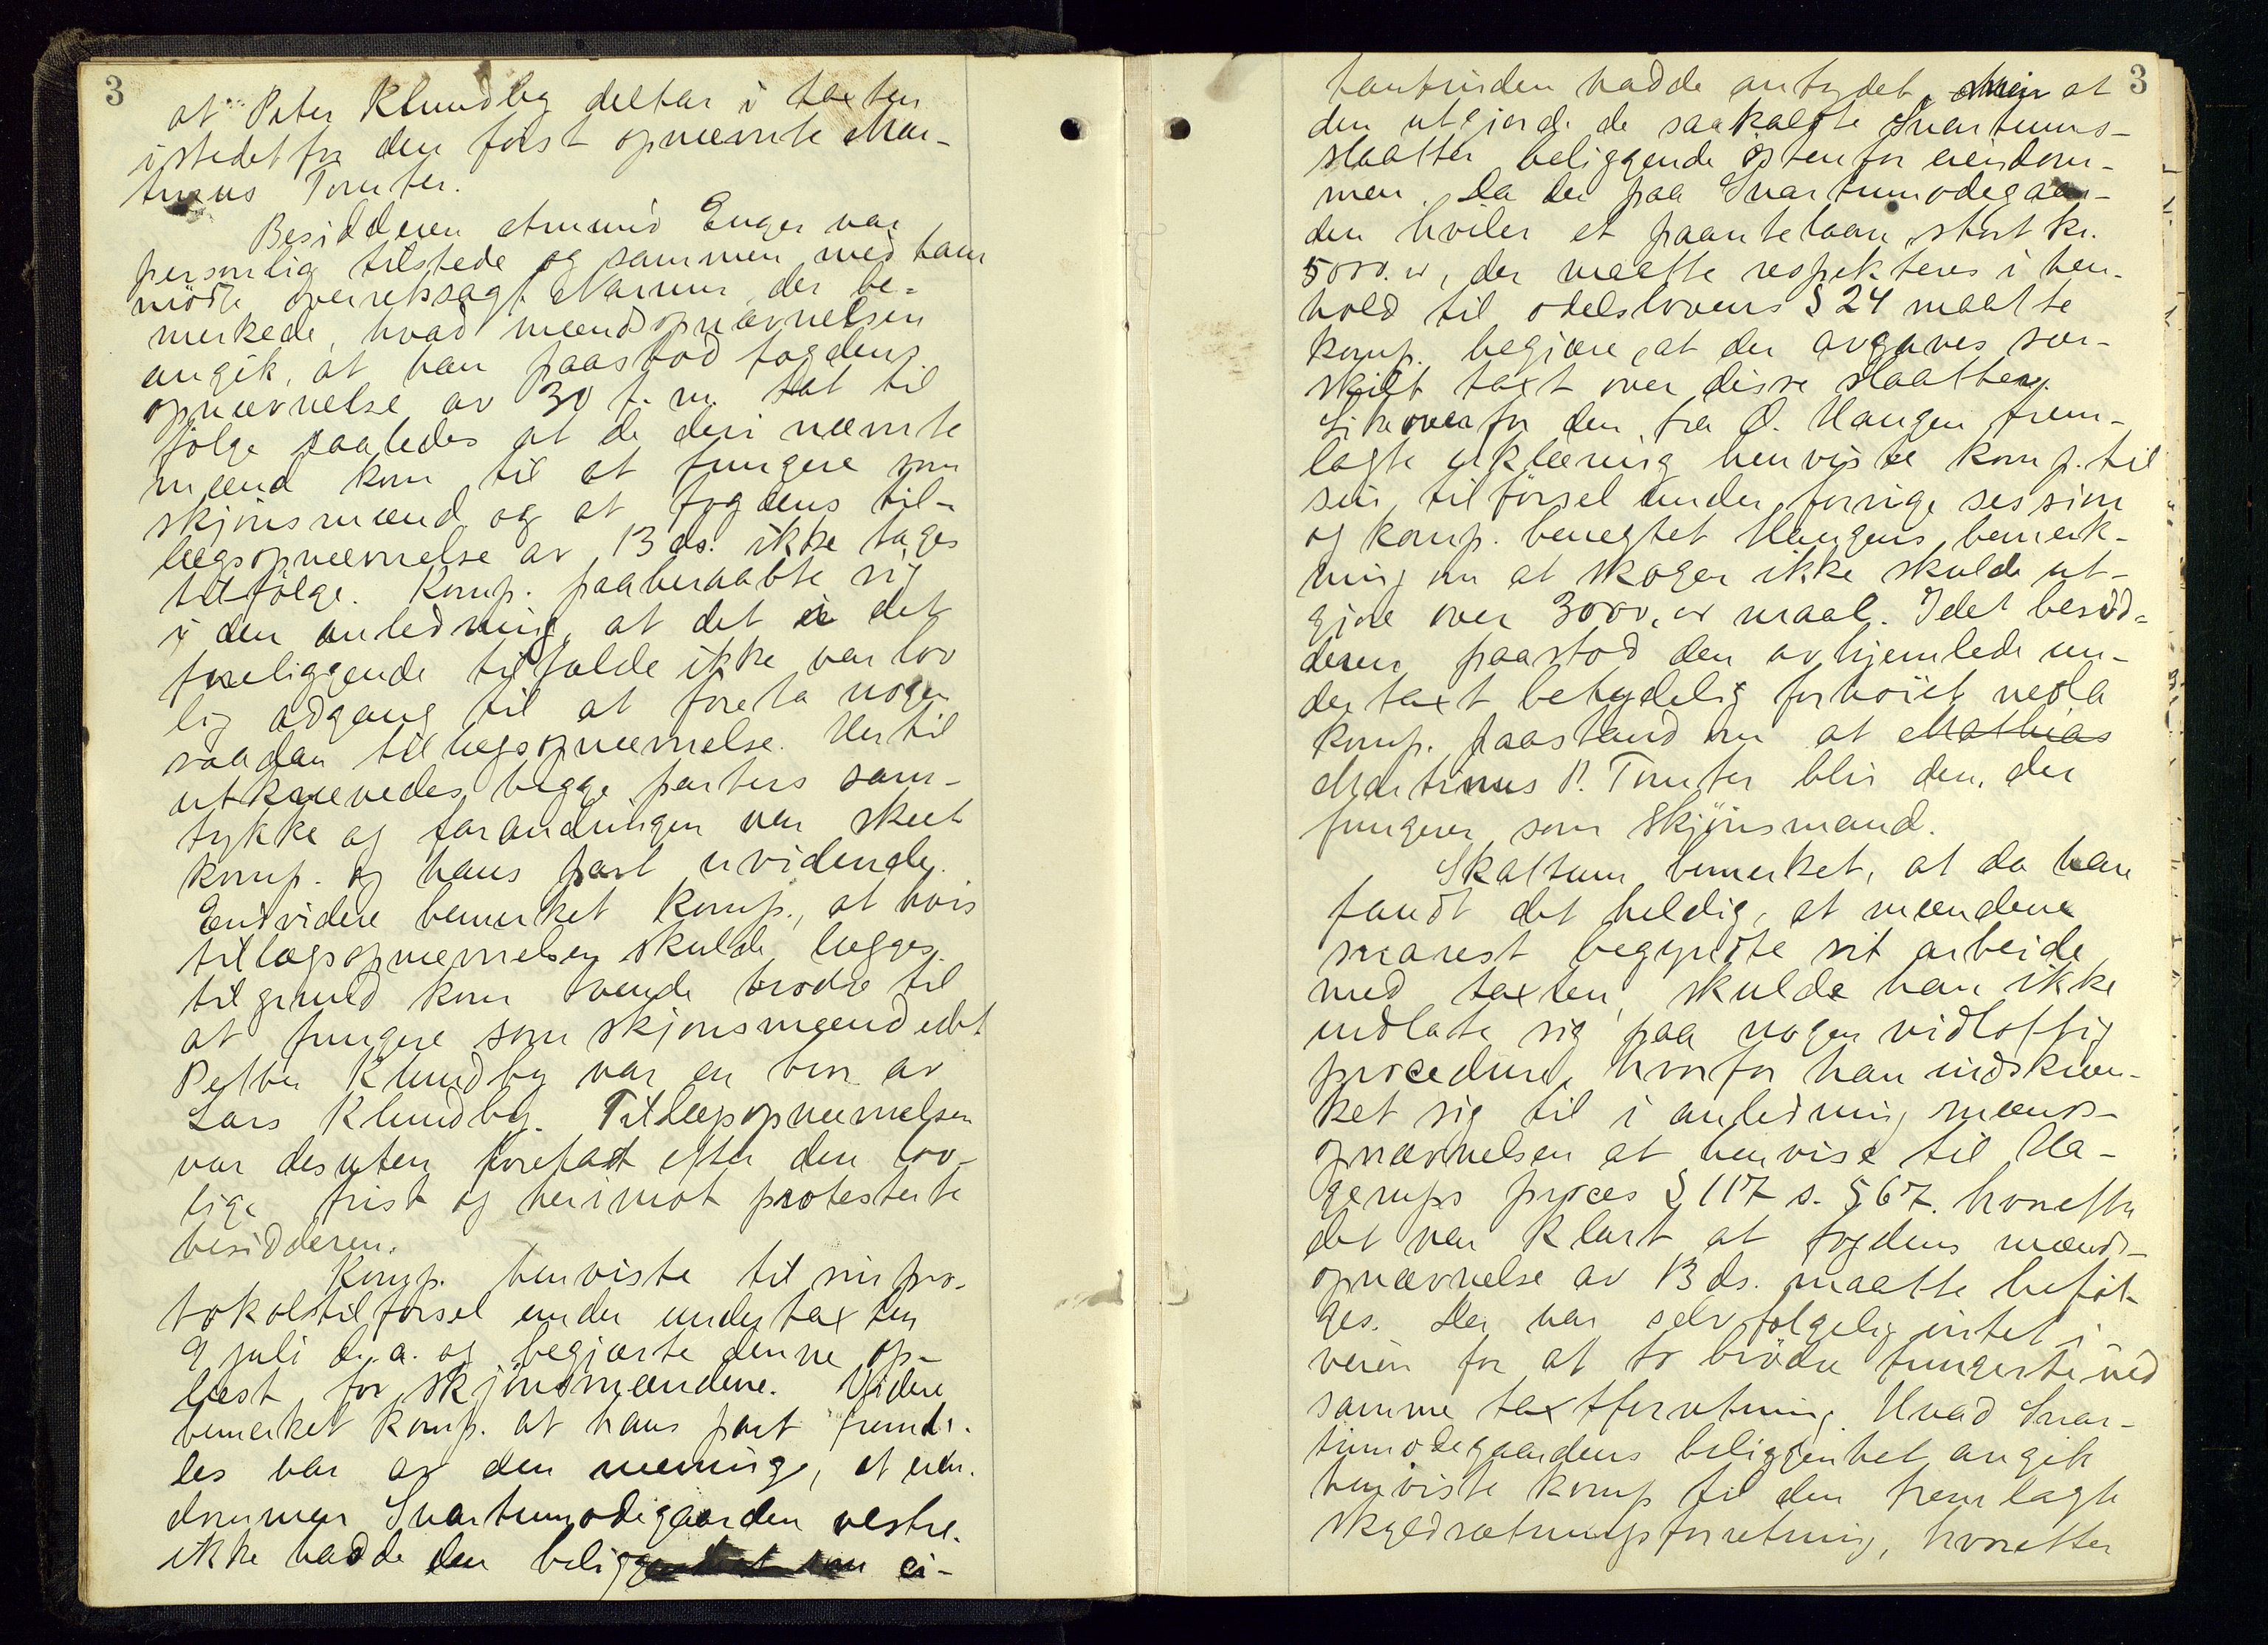 3
at Peter Klundby deltar i taxten
istedet for den först opnævnte Mar-
tinus Tomter.
Besidderen Amund Enger var
personlig tilstede og sammen med ham
mödte overretssagf. Narum, der be-
merkede, hvad mændsopnævnelsen
angik, at han paastod fogdens
opnævnelse av 30 f. m. tat til
følge saaledes at de deri nævnte
mænd kom til at fungere som
skjönsmænd og at fogdens til-
lægsopnævnelse av 13 ds. ikke tages
tilfölge. Komp. paaberaabte sig
i den anledning, at det i det
foreliggende tilfælde ikke var lov
lig adgang til at foreta nogen
saadan tillægsopnævnelse. Hertil
utkrævedes begge parters sam-
tykke og forandringen var skeet
komp. og hans part uvidende.
Endvidere bemerket komp., at hvis
tillægsopnævnelsen skulde lægges
tilgrund kom tvende brödre til
at fungere som skjönsmænd idet
Petter Klundby var en bror av
Lars Klundby. Tillægsopnævnelsen
var desuten foretat efter den lov-
lige frist og herimot protesterte
besidderen.
Komp. henviste til sin pro-
tokoltilförsel under undertaxten
9 juli d. a. og begjærte denne op-
læst for skjönsmændene. Videre
bemerket komp. at hans part fremde-
les var av den mening, at eien-
dommen Svartumödegaarden vestre
ikke hadde den beliggenhet som ei-
3
tantinden hadde antydet, men at
den utgjorde de saakaldte Svartums-
slaatter beliggende östenfor eiendom-
men. Da der paa Svartumödegaar-
den hviler et paantelaan stort kr.
5000.00, der maatte respekteres i hen-
hold til odelslovens § 24 maatte
komp. begjære, at der avgaves sær-
skilt taxt over disse slaatter.
Likeoverfor den fra O. Haugen frem-
lagte erklæring henviste komp. til
sin tilförsel under forrige session
og komp. benegtet Haugens bemerk-
ning om at skogen ikke skulde ut-
gjöre over 3000,00 maal. Idet besid-
deren paastod den avhjemlede un-
dertaxt betydelig forhöiet nedla
komp. paastand om at Mathias
Martinus P. Tomter blir den, der
fungerer som skjönsmand.
Skattum bemerket, at da han
fandt det heldig, at mændene
snarest begyndte sit arbeide
med taxten, skulde han ikke
indlate sig paa nogen vidlöftig
procedure, hvorfor han indskræn-
ket sig til i anledning mænds-
opnævnelsen at henvise til Ha-
gerups proces § 117 s. 567. hvorefter
det var klart at fogdens mænds-
opnævnelse av 13 ds. maatte beföl-
ges. Der var selvfølgelig intet i
veien for at to brödre fungerte ved
samme taxtforretning. Hvad Svar-
tumödegaardens beliggenhet angik
henviste komp til den fremlagte
skyldsætningsforretning, hvorefter